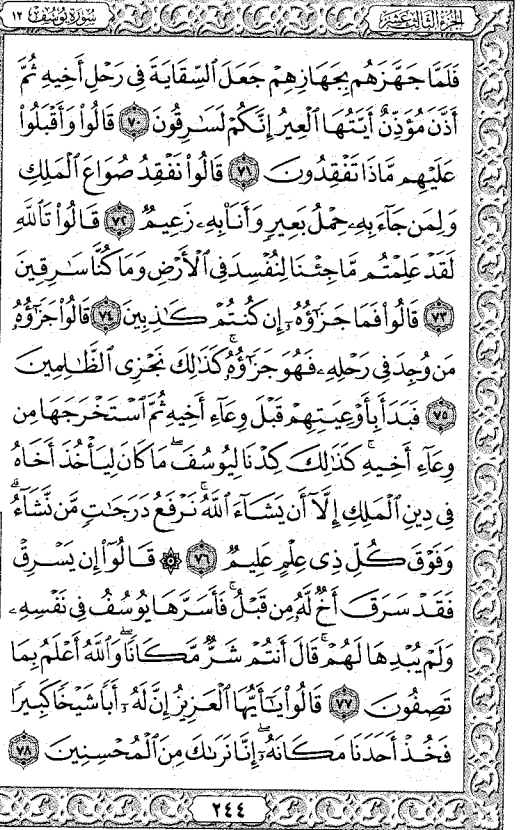 الجزء الثالث عشر
سورة يوسف ١٢
فَلَمَّا جَهَّزَهُم بِجَهَازِهِمْ جَعَلَ ٱلسِّقَايَةَ فِى رَحْلِ أَخِيهِ ثُمَّ
أَذَّنَ مُؤَذِّنٌ أَيَّتُهَا ٱلْعِيرُ إِنَّكُمْ لَسَٰرِقُونَ ٧٠ قَالُوا۟ وَأَقْبَلُوا۟
عَلَيْهِم مَّاذَا تَفْقِدُونَ ٧١ قَالُوا۟ نَفْقِدُ صُوَاعَ ٱلْمَلِكِ
وَلِمَن جَآءَ بِهِۦ حِمْلُ بَعِيرٍ وَأَنَا۠ بِهِۦ زَعِيمٌ ٧٢ قَالُوا۟ تَٱللَّهِ
لَقَدْ عَلِمْتُم مَّا جِئْنَا لِنُفْسِدَ فِى ٱلْأَرْضِ وَمَا كُنَّا سَٰرِقِينَ
٧٣ قَالُوا۟ فَمَا جَزَٰٓؤُهُۥٓ إِن كُنتُمْ كَٰذِبِينَ ٧٤ قَالُوا۟ جَزَٰٓؤُهُۥ
مَن وُجِدَ فِى رَحْلِهِۦ فَهُوَ جَزَٰٓؤُهُۥ ۚ كَذَٰلِكَ نَجْزِى ٱلظَّٰلِمِينَ
٧٥ فَبَدَأَ بِأَوْعِيَتِهِمْ قَبْلَ وِعَآءِ أَخِيهِ ثُمَّ ٱسْتَخْرَجَهَا مِن
وِعَآءِ أَخِيهِ ۚ كَذَٰلِكَ كِدْنَا لِيُوسُفَ ۖ مَا كَانَ لِيَأْخُذَ أَخَاهُ
فِى دِينِ ٱلْمَلِكِ إِلَّآ أَن يَشَآءَ ٱللَّهُ ۚ نَرْفَعُ دَرَجَٰتٍ مَّن نَّشَآءُ ۗ
وَفَوْقَ كُلِّ ذِى عِلْمٍ عَلِيمٌ ٧٦ ۞ قَالُوٓا۟ إِن يَسْرِقْ
فَقَدْ سَرَقَ أَخٌ لَّهُۥ مِن قَبْلُ ۚ فَأَسَرَّهَا يُوسُفُ فِى نَفْسِهِۦ
وَلَمْ يُبْدِهَا لَهُمْ ۚ قَالَ أَنتُمْ شَرٌّ مَّكَانًا ۖ وَٱللَّهُ أَعْلَمُ بِمَا
تَصِفُونَ ٧٧ قَالُوا۟ يَٰٓأَيُّهَا ٱلْعَزِيزُ إِنَّ لَهُۥٓ أَبًا شَيْخًا كَبِيرًا
فَخُذْ أَحَدَنَا مَكَانَهُۥٓ ۖ إِنَّا نَرَىٰكَ مِنَ ٱلْمُحْسِنِينَ ٧٨
٢٤٤